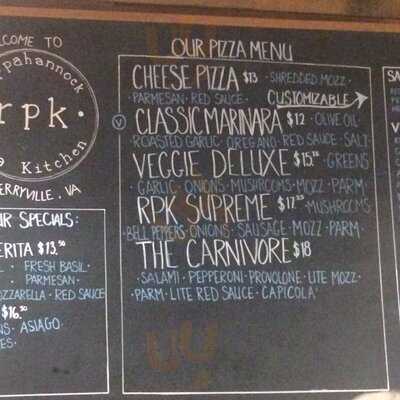 LCOME TO
ppahannock
rpk.
a Kitchen
ERRYVILLE, VA
UR SPECIALS:
ERITA $13.50
FRESH BASIL
PARMESAN
OZZARELLA · RED SAUCE
$16.50
NS · ASIAGO
ES ·
OUR PIZZA MENU
CHEESE PIZZA $13 · SHREDDED MOZZ ·
· PARMESAN · RED SAUCE · CUSTOMIZABLE
V CLASSIC MARINARA $12 · OLIVE OIL ·
ROASTED GARLIC · OREGANO · RED SAUCE · SALT
VEGGIE DELUXE · GREENS
GARLIC · ONIONS · MUSHROOMS · MOZZ · PARM
RPK SUPREME · MUSHROOMS
· BELL PEPPERS · ONIONS · SAUSAGE · MOZZ · PARM ·
THE CARNIVORE $18
· SALAMI · PEPPERONI · PROVOLONE · LITE MOZZ ·
PARM · LITE RED SAUCE · CAPICOLA